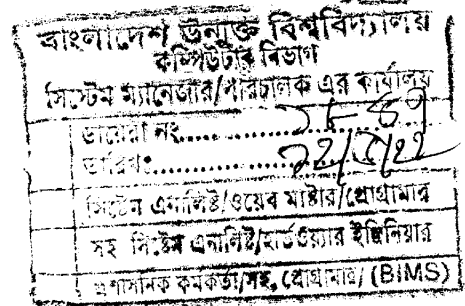 বাংলাদেশ উন্মুক্ত বিশ্ববিদ্যালয়
কম্পিউটার বিভাগ
সিস্টেম ম্যানেজার/পরিচালক এর কার্যালয়
ডায়েরী নং..................
তারিখঃ..................
সিস্টেম এনালিষ্ট/ওয়েব মাষ্টার/প্রোগ্রামার
সহ সিস্টেম এনালিষ্ট/হার্ডওয়্যার ইঞ্জিনিয়ার
প্রশাসনিক কর্মকর্তা/সহ, প্রোগ্রামার/ (BIMS)